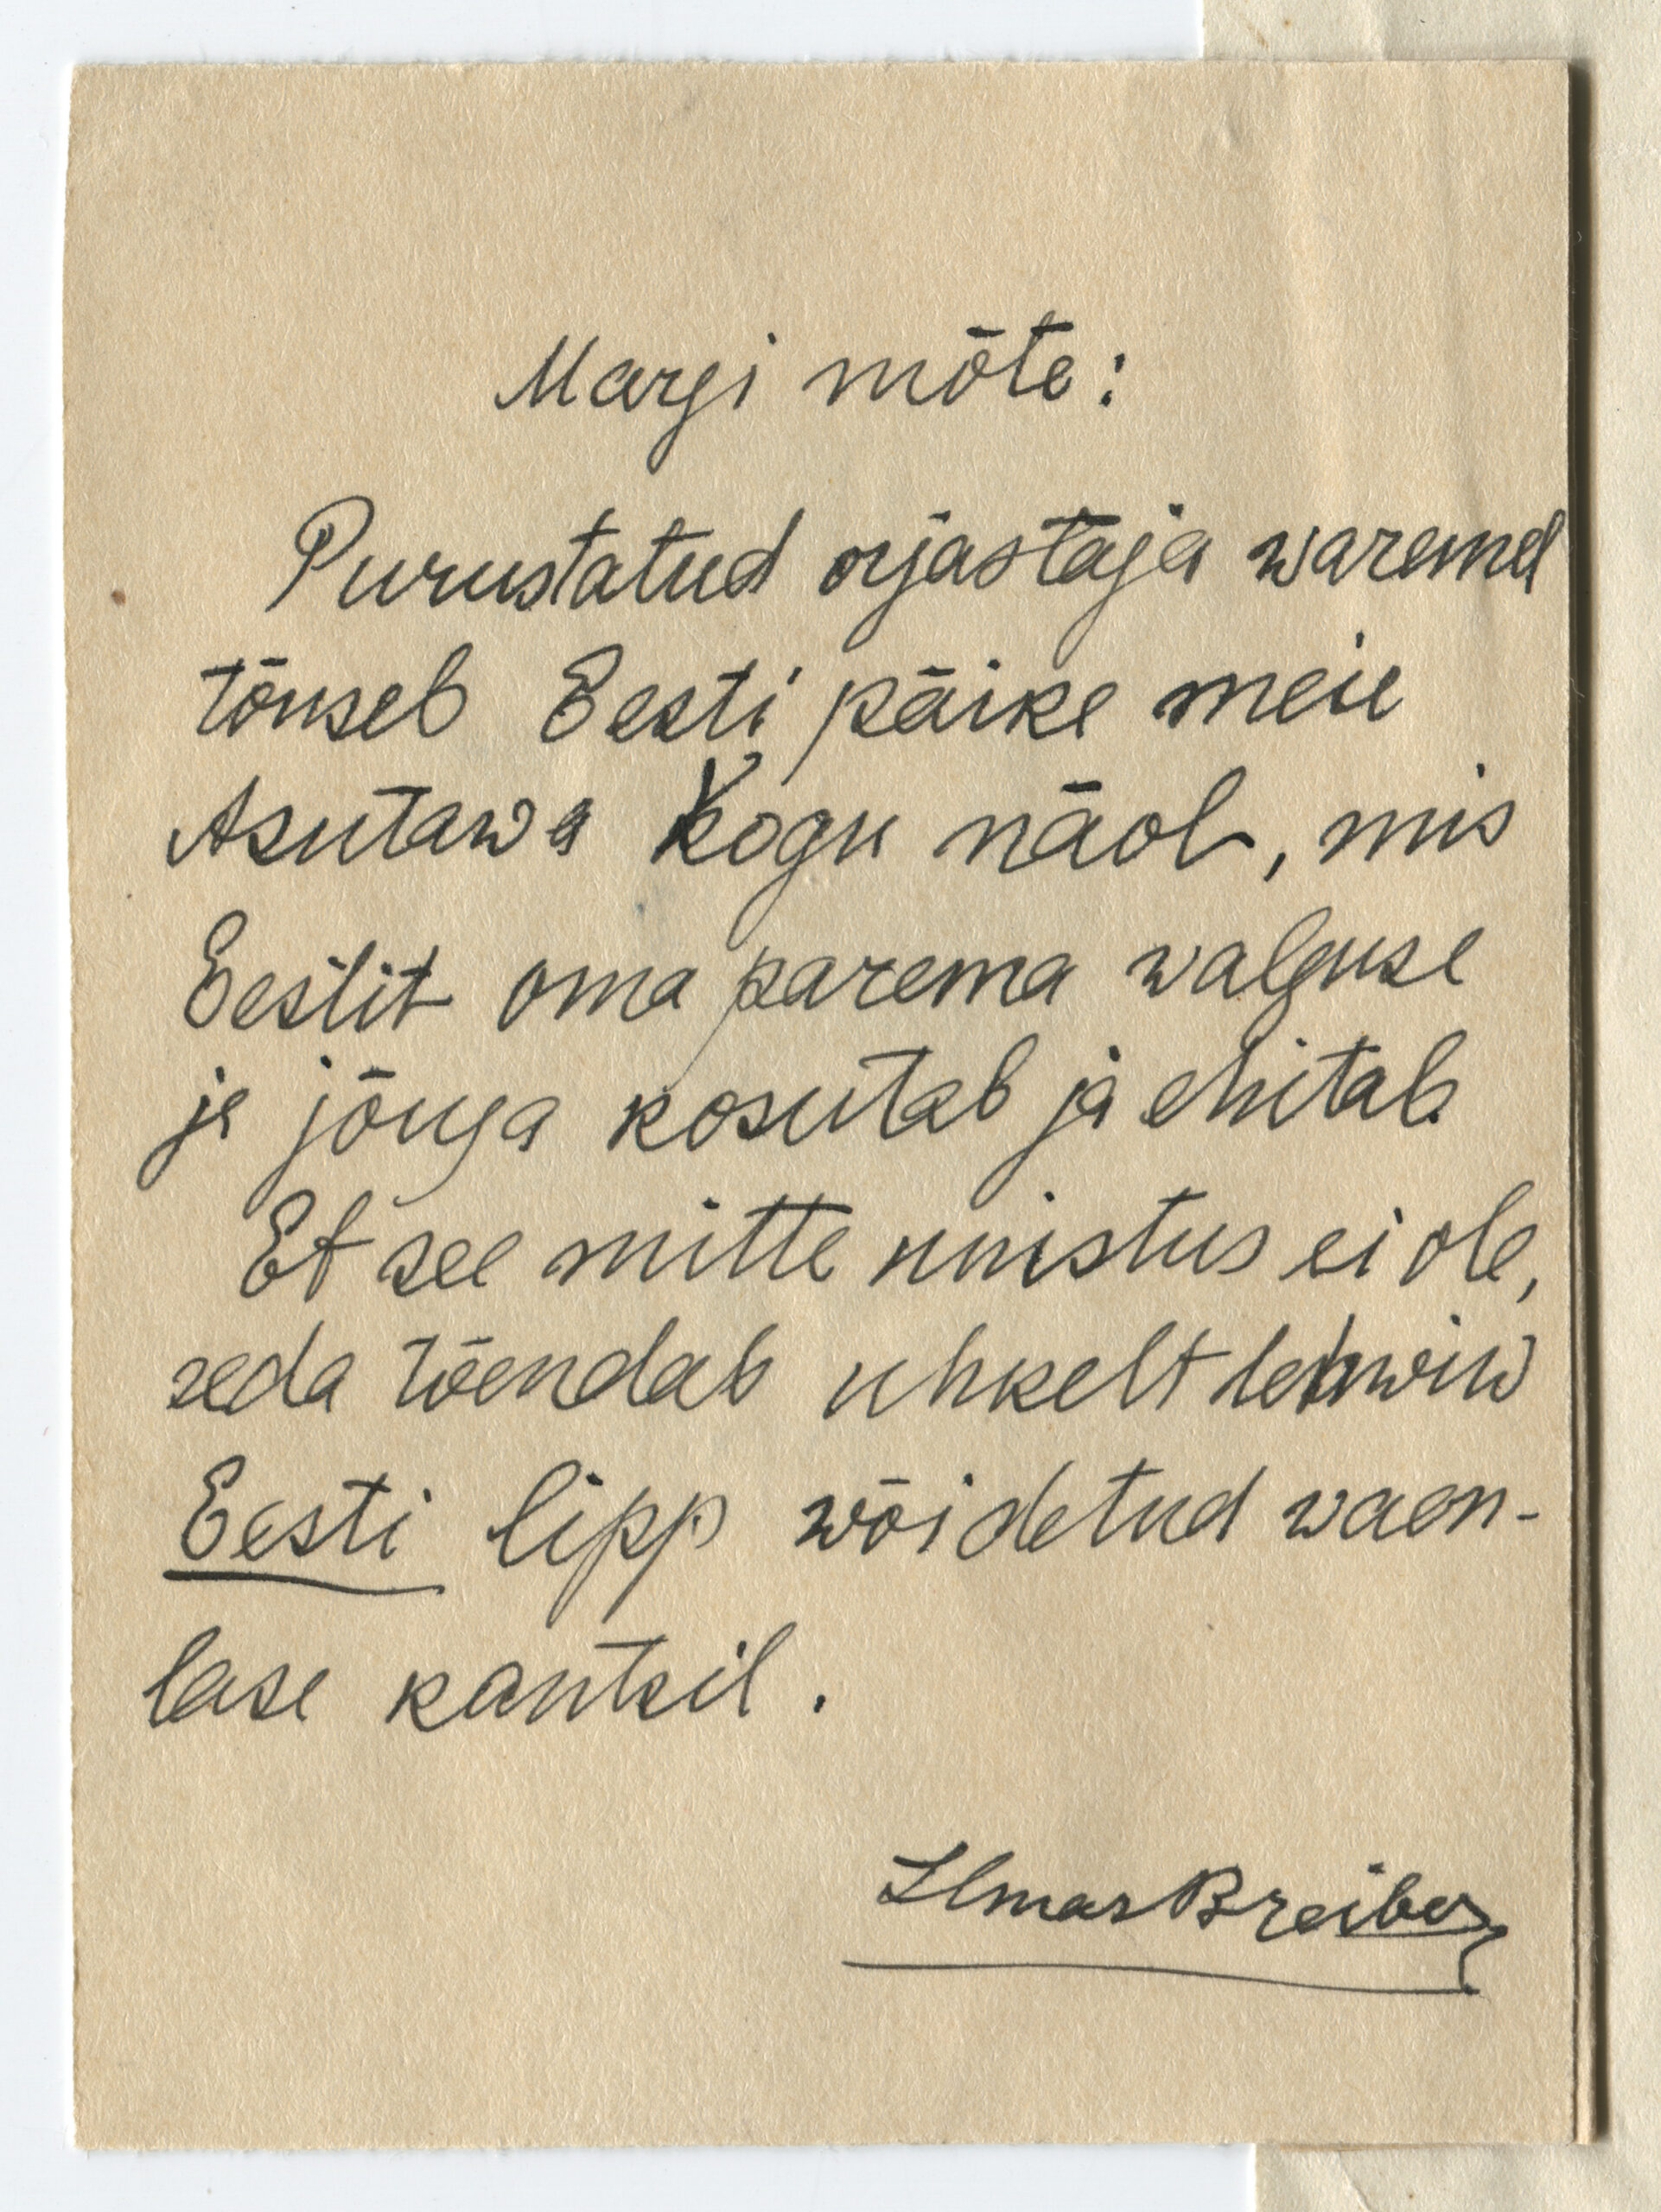 Margi mõte:
Purustatud orjastaja waremel
tõuseb Eesti päike meie
Asutawa Kogu näol, mis
Eestit oma parema walguse
ja jõuga kosutab ja ehitab
Et see mitte unistus ei ole,
seda tõendab uhkelt lehwiw
Eesti lipp wõidetud waen-
lase kantsil.
Ilmar Breiber